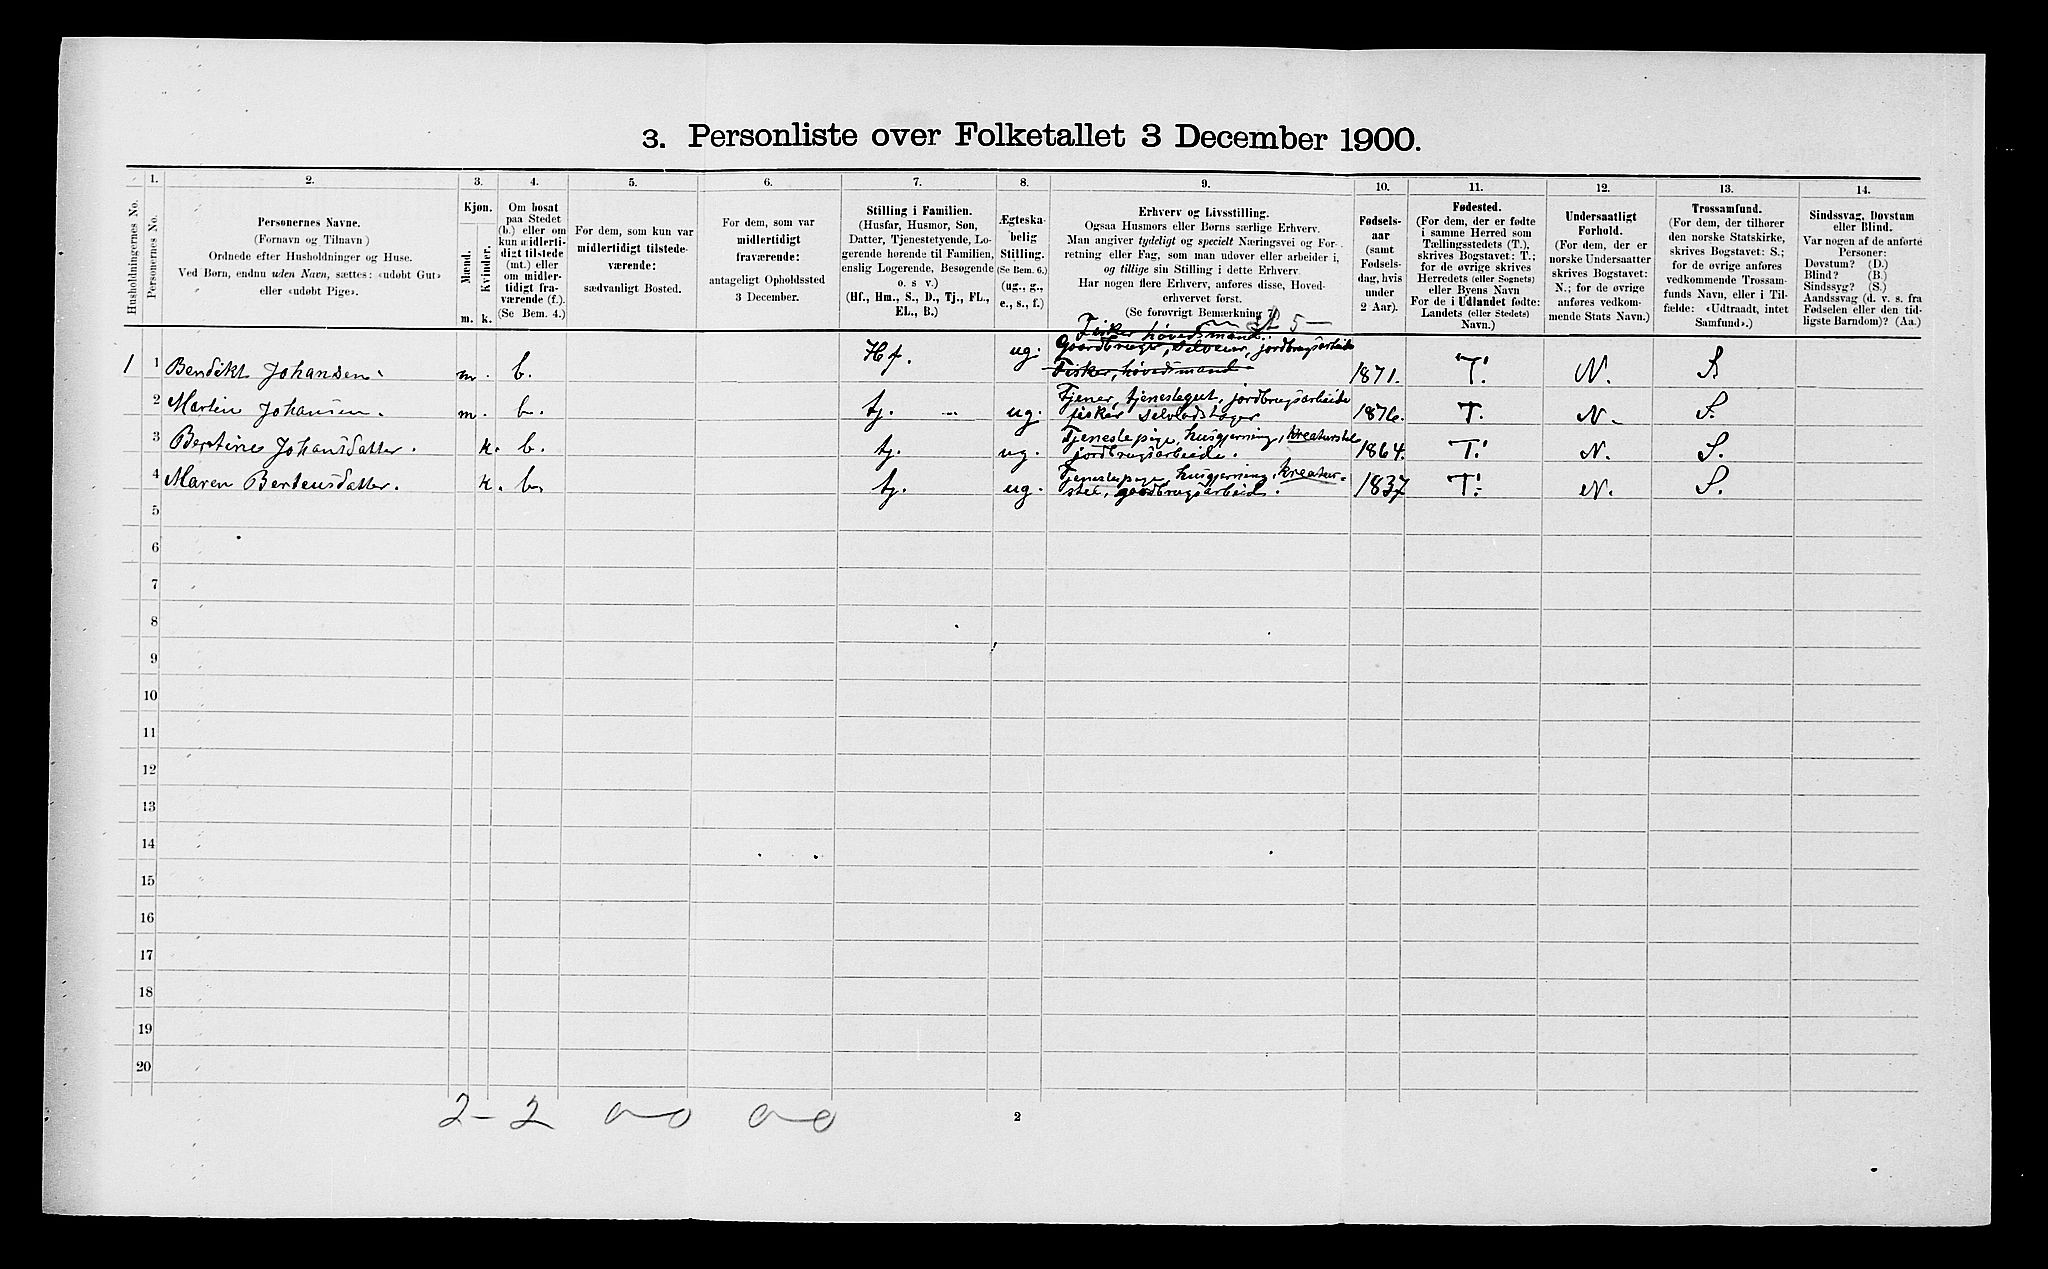 3. Personliste over Folketallet 3 December 1900.
1. 2. 3. 4. 5. 6. 7. 8. 9. 10. 11. 12. 13. 14.
Husholdningernes No.
Personernes No.
Personernes Navne.
(Fornavn og Tilnavn)
Ordnede efter Husholdninger og Huse.
Ved Børn, endnu uden Navn, sættes: «udøbt Gut»
eller «udøbt Pige».
Kjøn.
Mænd.
Kvinder.
m. k.
Om bosat
paa Stedet
(b.) eller om
kun midlerti-
digt tilstede
(mt.) eller
om midler-
tidigt fra-
værende (f.).
(Se Bem. 4.)
For dem, som kun var
midlertidigt tilstede-
værende:
sædvanligt Bosted.
For dem, som var
midlertidigt
fraværende:
antageligt Opholdssted
3 December.
Stilling i Familien.
(Husfar, Husmor, Søn,
Datter, Tjenestetyende, Lo-
gerende hørende til Familien,
enslig Logerende, Besøgende
o. s v.)
(Hf., Hm., S., D., Tj., FL.,
EL., B.)
Ægteska-
belig
Stilling.
(Se Bem. 6.)
(ug., g.,
e., s., f.)
Erhverv og Livsstilling.
Ogsaa Husmors eller Børns særlige Erhverv.
Man angiver tydeligt og specielt Næringsvei og For-
retning eller Fag, som man udøver eller arbeider i,
og tillige sin Stilling i dette Erhverv.
Har nogen flere Erhverv, anføres disse, Hoved-
erhvervet først.
(Se forøvrigt Bemærkning 7.)
Fødsels-
aar
(samt
Fødsels-
dag, hvis
under
2 Aar).
Fødested.
(For dem, der er fødte
i samme Herred som
Tællingsstedets (T.),
skrives Bogstavet: T.;
for de øvrige skrives
Herredets (eller Sognets)
eller Byens Navn
For de i Udlandet fødte:
Landets (eller Stedets)
Navn.)
Undersaatligt
Forhold.
(For dem, der er
norske Undersaatter
skrives Bogstavet:
N.; for de øvrige
anføres vedkom-
mende Stats Navn.)
Trossamfund.
(For dem, der tilhører
den norske Statskirke,
skrives Bogstavet: S.;
for de øvrige anføres
vedkommende Trossam-
funds Navn, eller i Til-
fælde: «Udtraadt, intet
Samfund».)
Sindssvag, Døvstum
eller Blind.
Var nogen af de anførte
Personer:
Døvstum? (D.)
Blind? (B.)
Sindssyg? (S.)
Aandssvag (d. v. s. fra
Fødselen eller den tid-
ligste Barndom)? (Aa.)
5 —
Fisker høvedsmand
Gaardbruger, Selveier, jordbrugsarbeide
1 1 Bendikt Johansen. m. b. Hf. ug. Fisker, høvedsmand 1871. T. N. S
2 Martin Johansen. m. b. tj. ug. Tjener, tjenestegut, jordbrugsarbeide
fisker selvlodstager 1876. T. N. S.
3 Bertine Johansdatter. k. b. tj. ug. Tjenestepige, husgjerning, kreaturstel
jordbrugsarbeide. 1864. T. N. S.
4 Maren Berteusdatter. k. b. tj. ug. Tjenestepige, husgjerning, kreatur-
stel, jordbrugsarbeid. 1837 T. N. S.
5
6
7
8
9
10
11
12
13
14
15
16
17
18
19
20
2 - 2 0—0 0—0
2